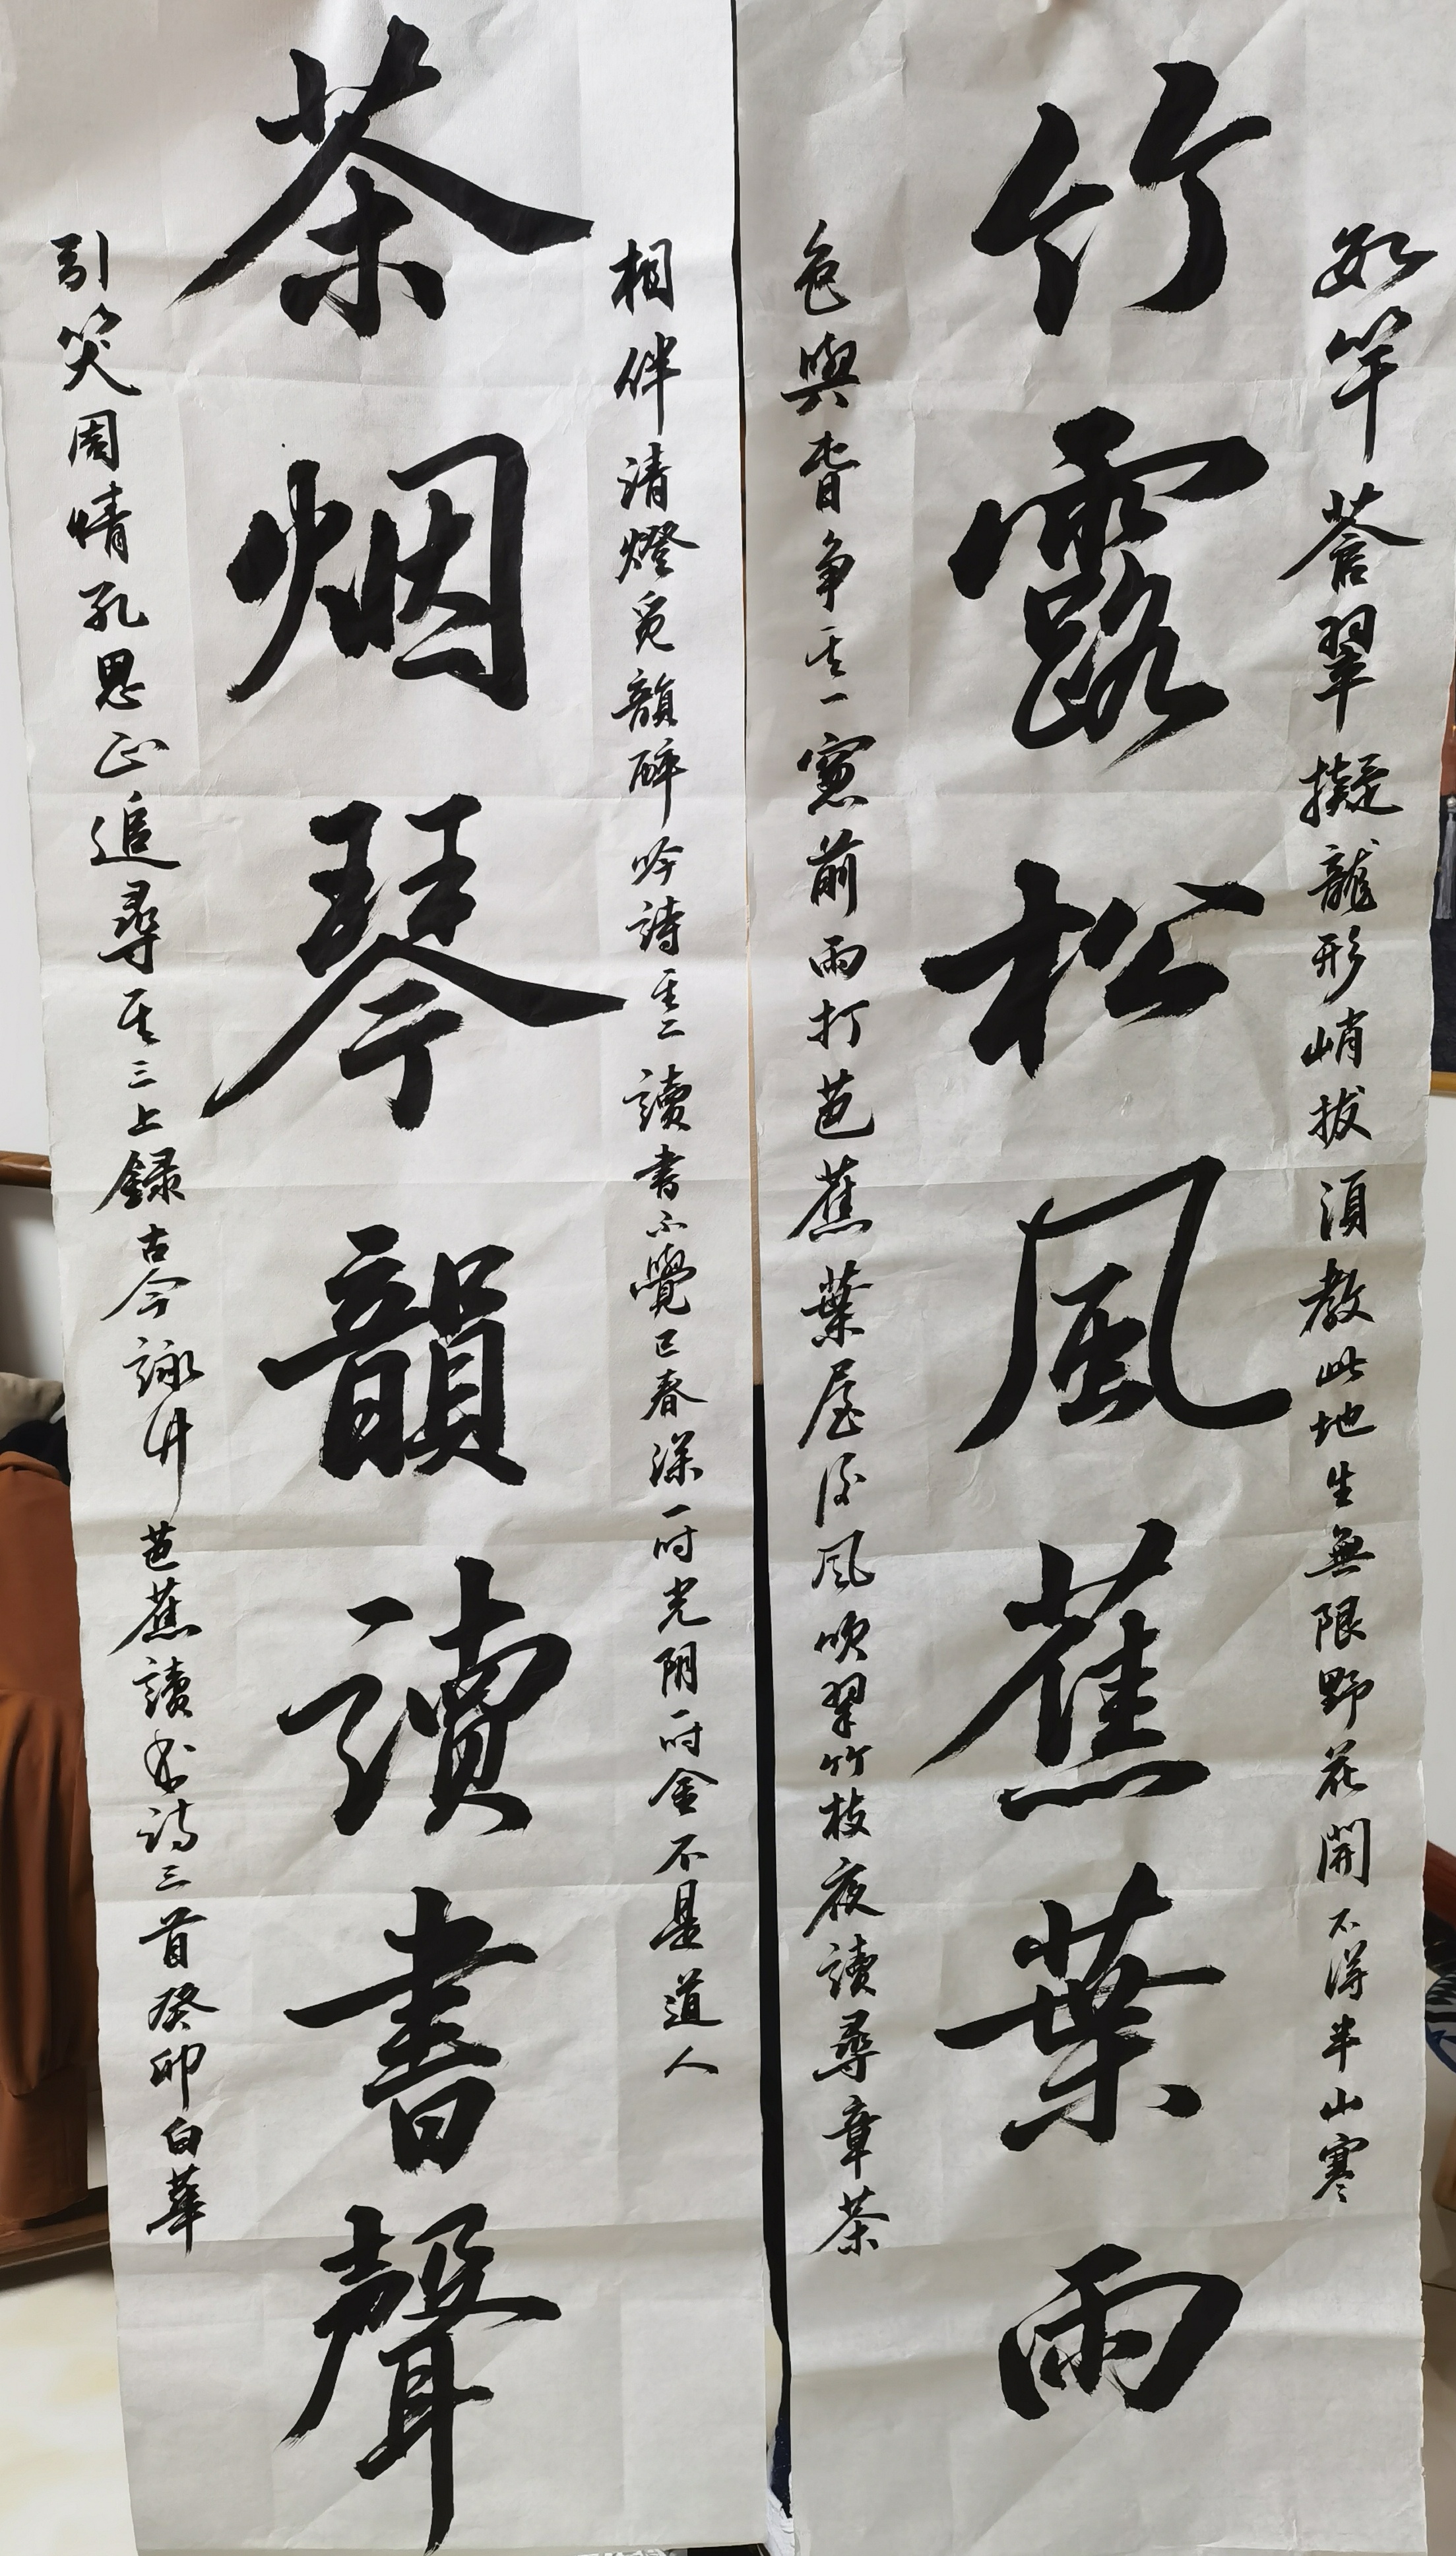 数竿蒼翠擬龍形峭拔須教此地生無限野花開不得半山寒
竹露松風蕉葉雨
色與春争其一窻前雨打芭蕉葉屋後風吹翠竹枝夜讀尋章茶
相伴清燈覓韻醉吟詩其二讀書不覺已春深一吋光阴吋金不是道人
茶烟琴韻讀書聲
引笑周情孔思正追尋其三上録古今詠竹芭蕉讀书诗三首癸卯白華